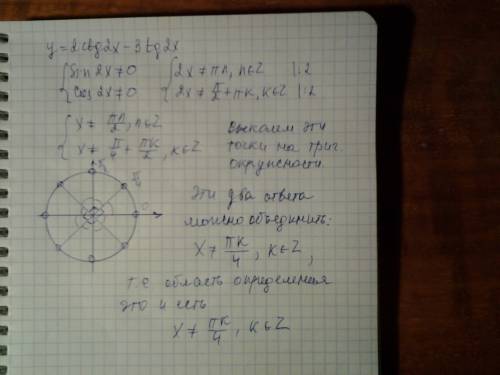 y = 2ctg2x - 3tg2x
{ sin 2x ≠ 0   { 2x ≠ πn, n∈Z   |:2
{ cos 2x ≠ 0   { 2x ≠ π/2 + πk, k∈Z   |:2
{ x ≠ πn/2, n∈Z
{ x ≠ π/4 + πk/2, k∈Z
эти
точки на триг.
окружности.
π/2
π/4
0
Эти два ответа
можно объединить:
x ≠ πk/4, k∈Z,
т.е область определения
это и есть
x ≠ πk/4, k∈Z